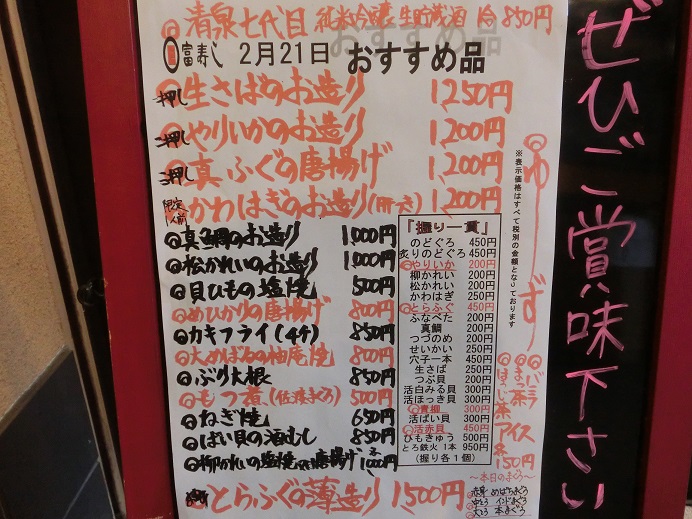 清泉七代目 純米吟醸 生貯蔵酒 冷 850円
富寿し 2月21日 おすすめ品
押し 生さばのお造り 1,250円
押し やりいかのお造り 1,200円
押し 真ふぐの唐揚げ 1,200円
限定 かわはぎのお造り(肝つき) 1,200円
真鯛のお造り 1,000円
松かれいのお造り 1,000円
貝ひもの塩焼 500円
めひかりの唐揚げ 800円
カキフライ(4ケ) 850円
大めばるの柚庵焼 800円
ぶり大根 850円
もつ煮(佐渡まぐろ) 500円
ねぎ焼 650円
ばい貝の酒むし 850円
柳かれいの塩焼 唐揚げ 1,000円
とらふぐの薄造り 1,500円
『握り一貫』
のどぐろ 450円
炙りのどぐろ 450円
◎やりいか 200円
柳かれい 200円
松かれい 200円
かわはぎ 250円
◎とらふぐ 450円
ふなべた 200円
真鯛 200円
つづのめ 200円
せいかい 250円
穴子一本 450円
生さば 200円
つぶ貝 200円
活白みる貝 300円
活ほっき貝 300円
◎青柳 300円
活ばい貝 300円
◎活赤貝 450円
ひもきゅう 500円
とろ鉄火 1本 950円
(握り各1個)
※表示価格はすべて税別の金額となっております
◎ゆず
◎バニラ
◎まっ茶
◎ほうじ茶
アイス
各150円
〜本日のまぐろ〜
赤身 めばちまぐろ
中とろ インドまぐろ
大とろ 本まぐろ
ぜひご賞味下さい